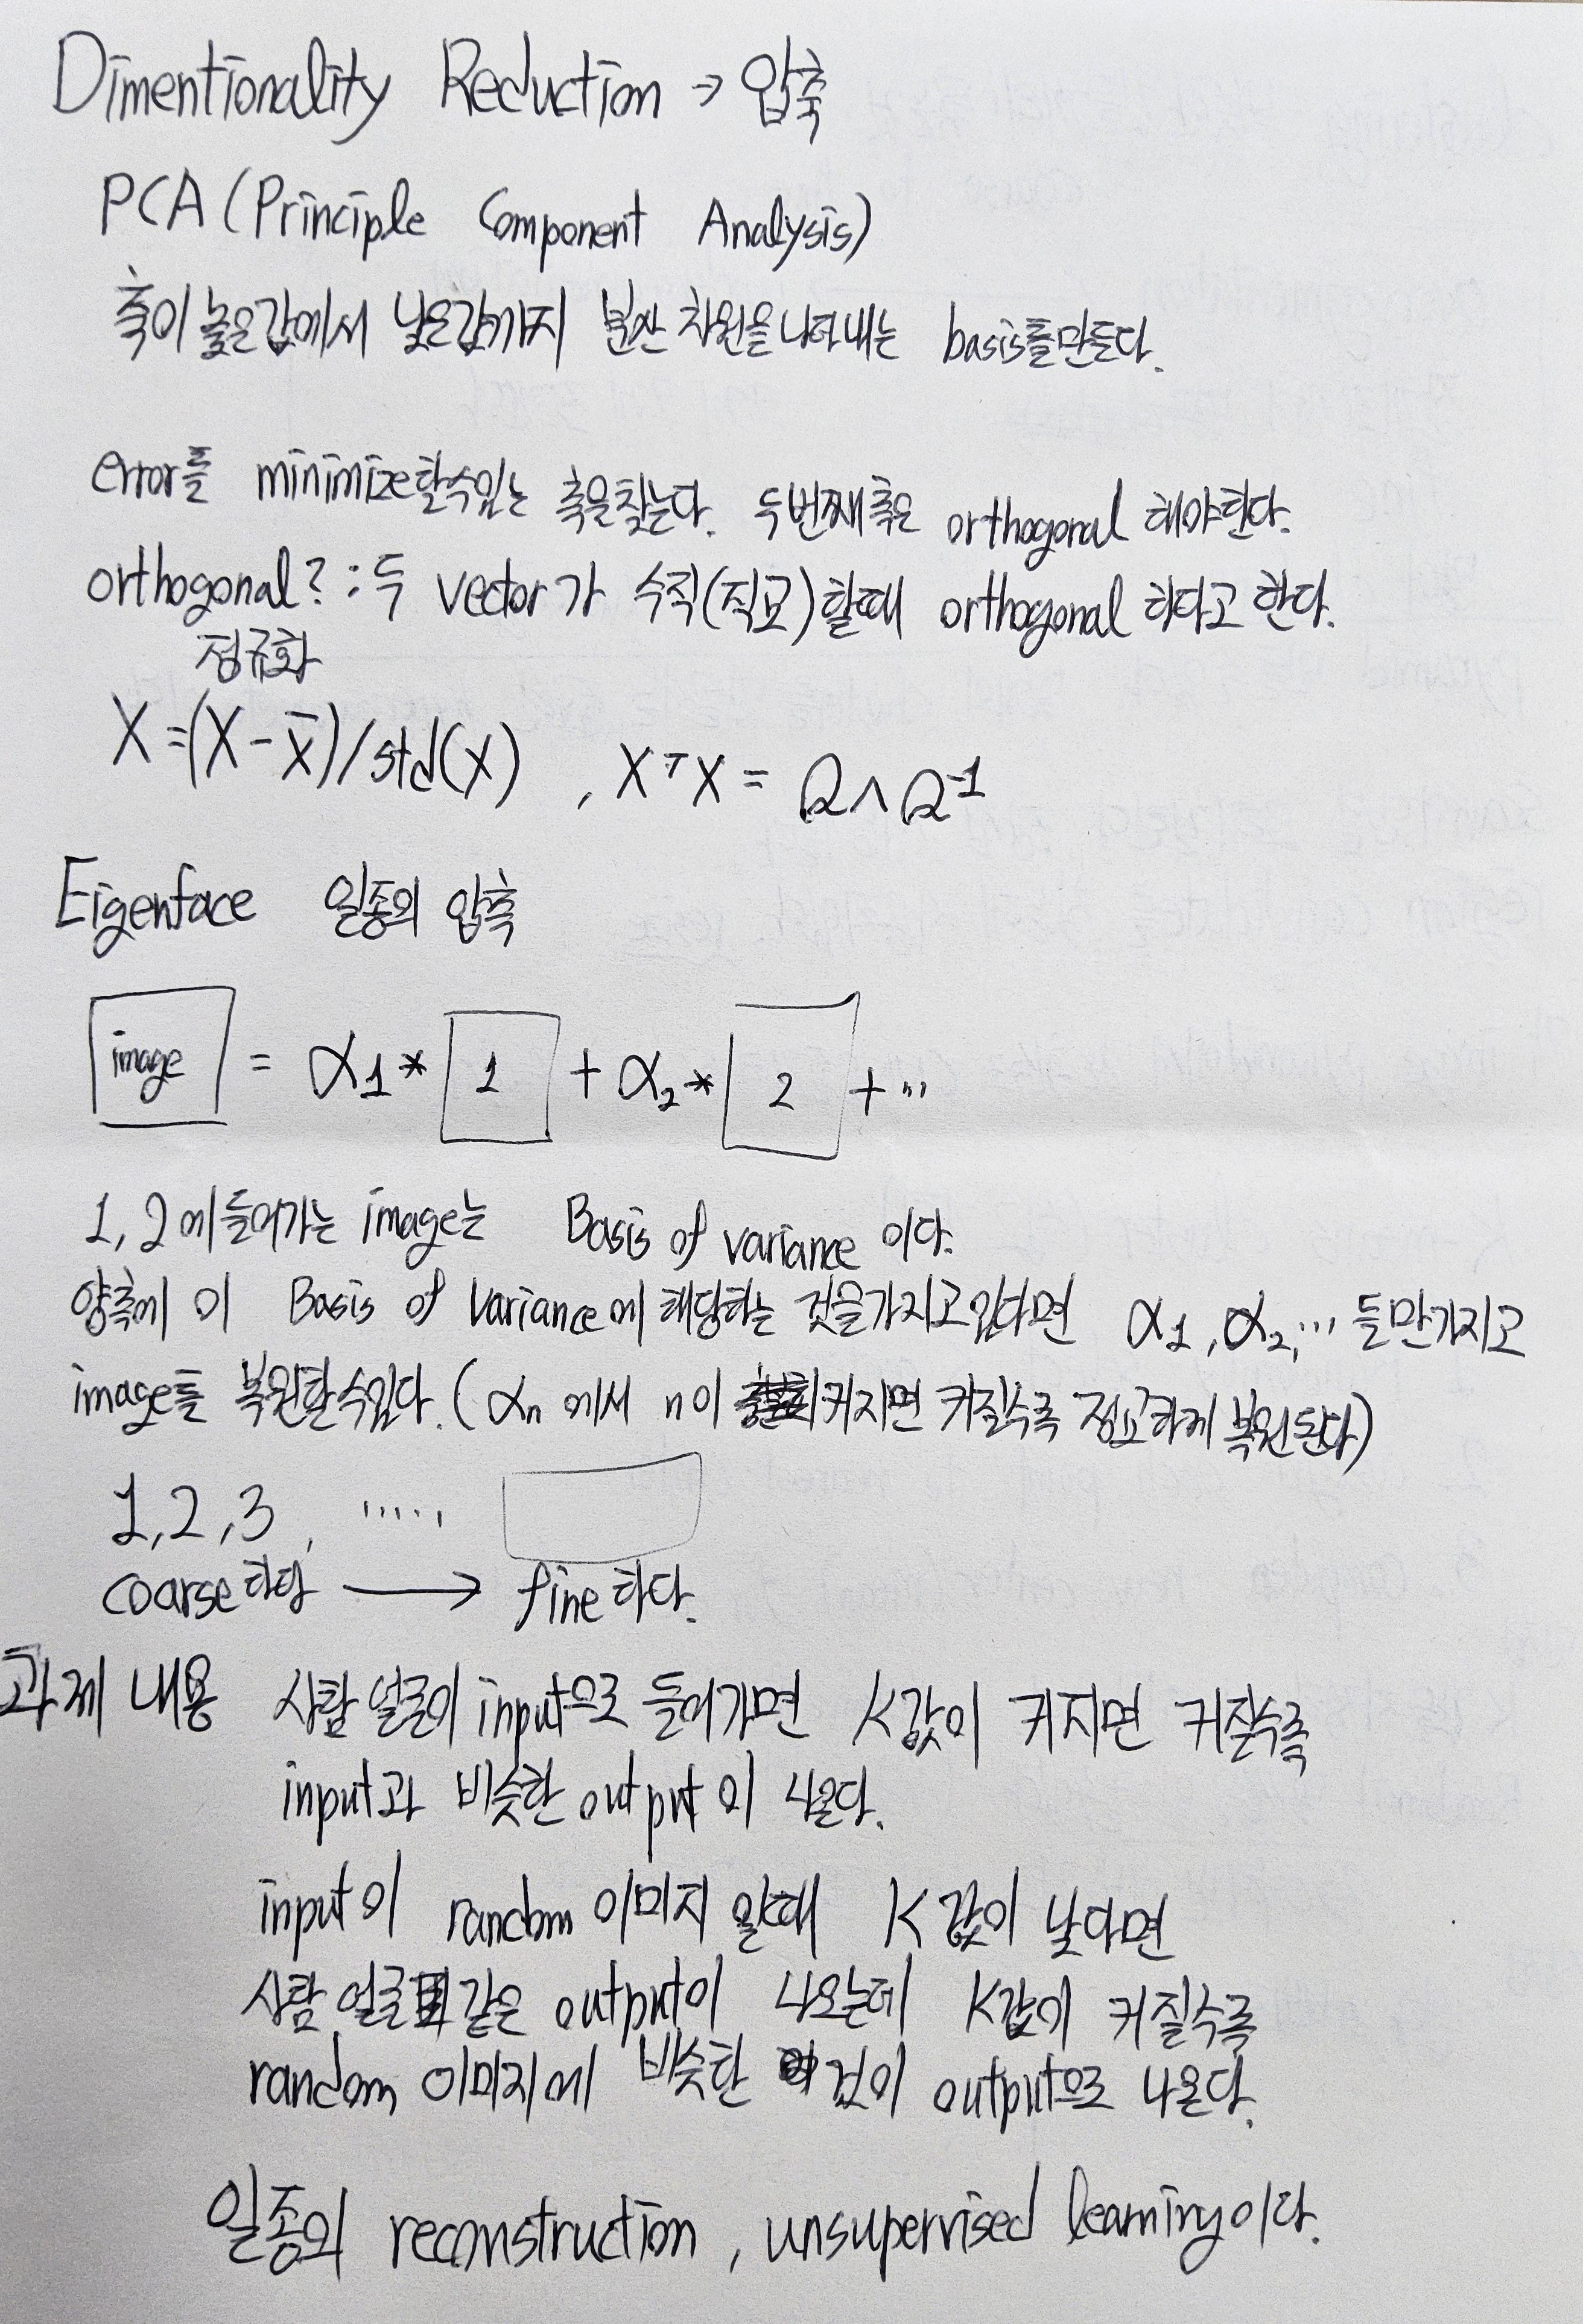 Dimentionality Reduction → 압축
PCA (Principle Component Analysis)
축이 높은값에서 낮은값까지 분산 차원을 나타내는 basis를 만든다.
error를 minimize할수있는 축을찾는다. 두번째축은 orthogonal 해야한다.
orthogonal? : 두 vector가 수직(직교)할때 orthogonal 하다고 한다.
정규화
X = (X - x̄) / std(x) , XᵀX = Q Λ Q⁻¹
Eigenface 일종의 압축
image = α₁ * 1 + α₂ * 2 + ...
1, 2 에 들어가는 image는 Basis of variance 이다.
양측에 이 Basis of variance에 해당하는 것을가지고있다면 α₁, α₂, ... 들만가지고
image를 복원할수있다. (αₙ 에서 n이 커지면 커질수록 정교하게 복원된다)
1, 2, 3, .....
coarse하다 → fine하다.
과제 내용 사람 얼굴이 input으로 들어가면 K값이 커지면 커질수록
input과 비슷한 output이 나온다.
input이 random 이미지 일때 K값이 낮다면
사람 얼굴 같은 output이 나오는데 K값이 커질수록
random 이미지에 비슷한 것이 output으로 나온다.
일종의 reconstruction, unsupervised learning이다.